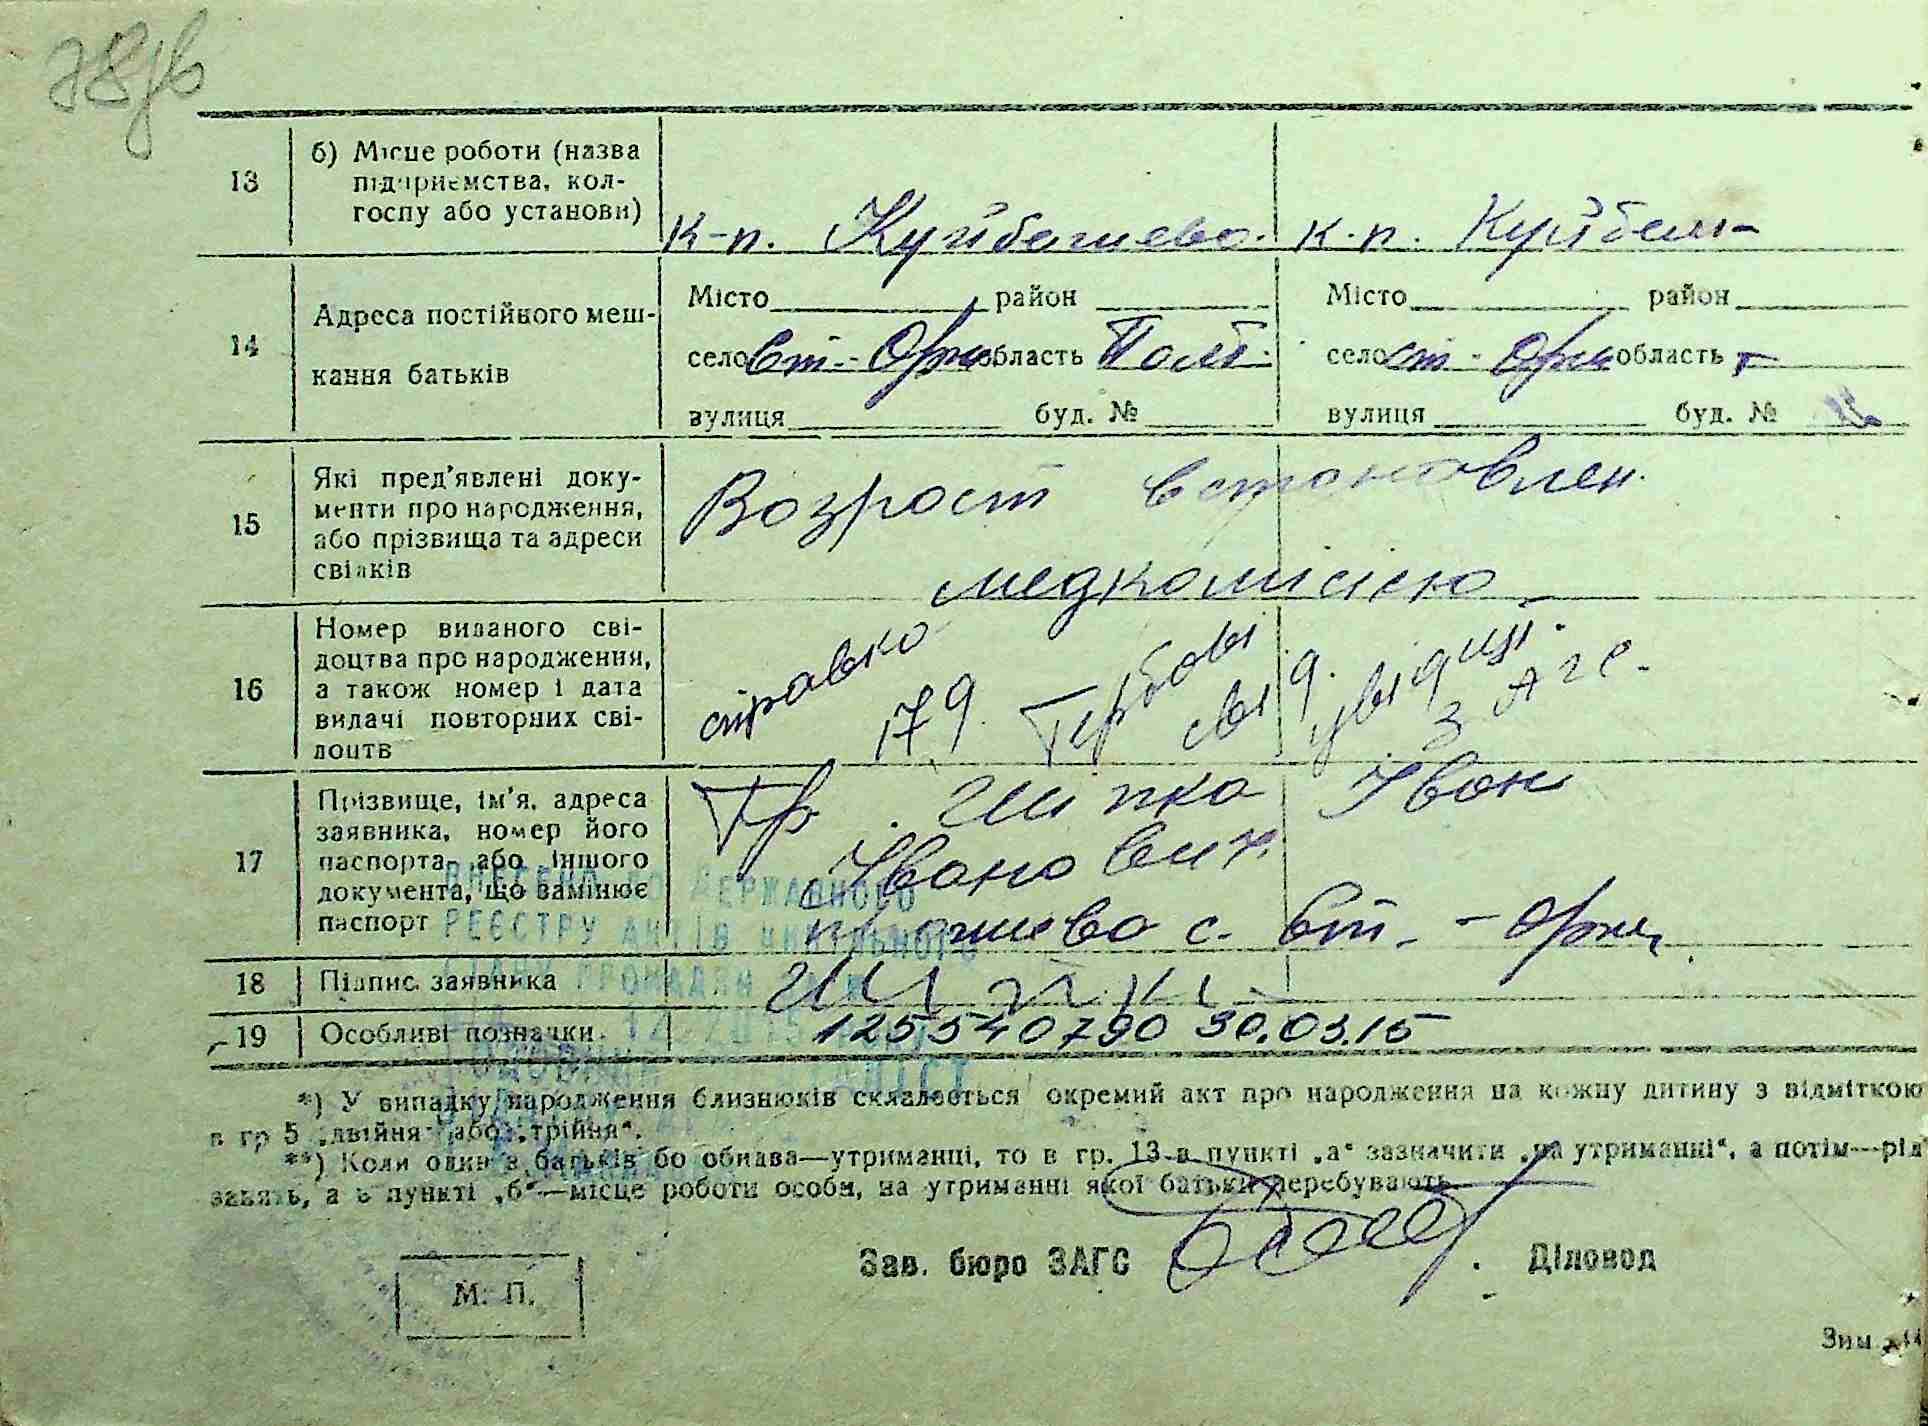 13 б) Місце роботи (назва підприємства, колгоспу або установи)
к-п. Куйбашево. к.п. Куйбеш-
14 Адреса постійного мешкання батьків
Місто район Місто район
село Ст.-Орж. область Полт. село ст.-Орж область
вулиця буд. № вулиця буд. №
15 Які пред'явлені документи про народження, або прізвища та адреси свідків
Возраст встановлен.
медкомісією
16 Номер виданого свідоцтва про народження, а також номер і дата видачі повторних свідоцтв
справка
179. Гербові свід.
17 Прізвище, ім'я, адреса заявника, номер його паспорта, або іншого документа, що замінює паспорт
Гр. Шипка Іван
Іванович
с. Ст.-Орж.
18 Підпис заявника
19 Особливі позначки.
125540790 30.03.15
ВНЕСЕНО ДО ДЕРЖАВНОГО
РЕЄСТРУ АКТІВ ЦИВІЛЬНОГО
СТАНУ ГРОМАДЯН
*) У випадку народження близнюків складається окремий акт про народження на кожну дитину з відміткою
в гр 5 „двійня" або „трійня".
**) Коли один з батьків бо обидва—утриманці, то в гр. 13 в пункті „а" зазначити „на утриманні", а потім—рід
занять, а в пункті „б"—місце роботи особи, на утриманні якої батьки перебувають.
Зав. бюро ЗАГС Діловод
М. П.